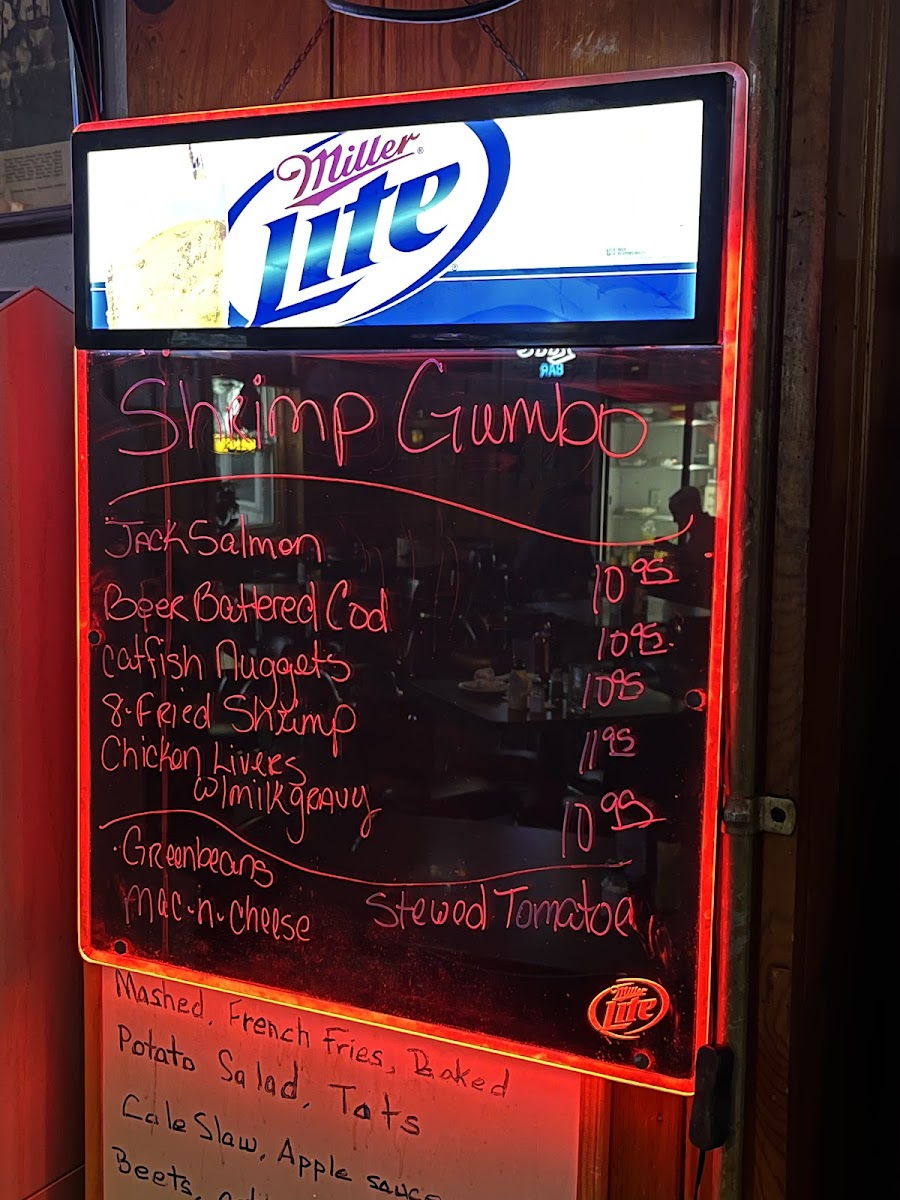 Miller
Lite
BAR
Shrimp Gumbo
Jack Salmon 10.95
Beer Battered Cod 10.95
Catfish Nuggets 10.95
8-Fried Shrimp 11.95
Chicken Livers
w/milk gravy 10.95
Greenbeans
Mac-n-Cheese Stewed Tomatoe
Miller
Lite
Mashed, French Fries, Baked
Potato Salad, Tots
Cole Slaw, Apple sauce
Beets,